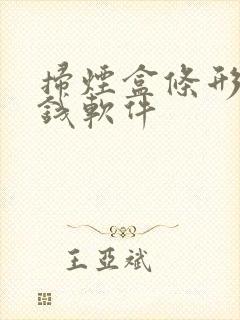 掃煙盒條形
錢軟件
王亞斌